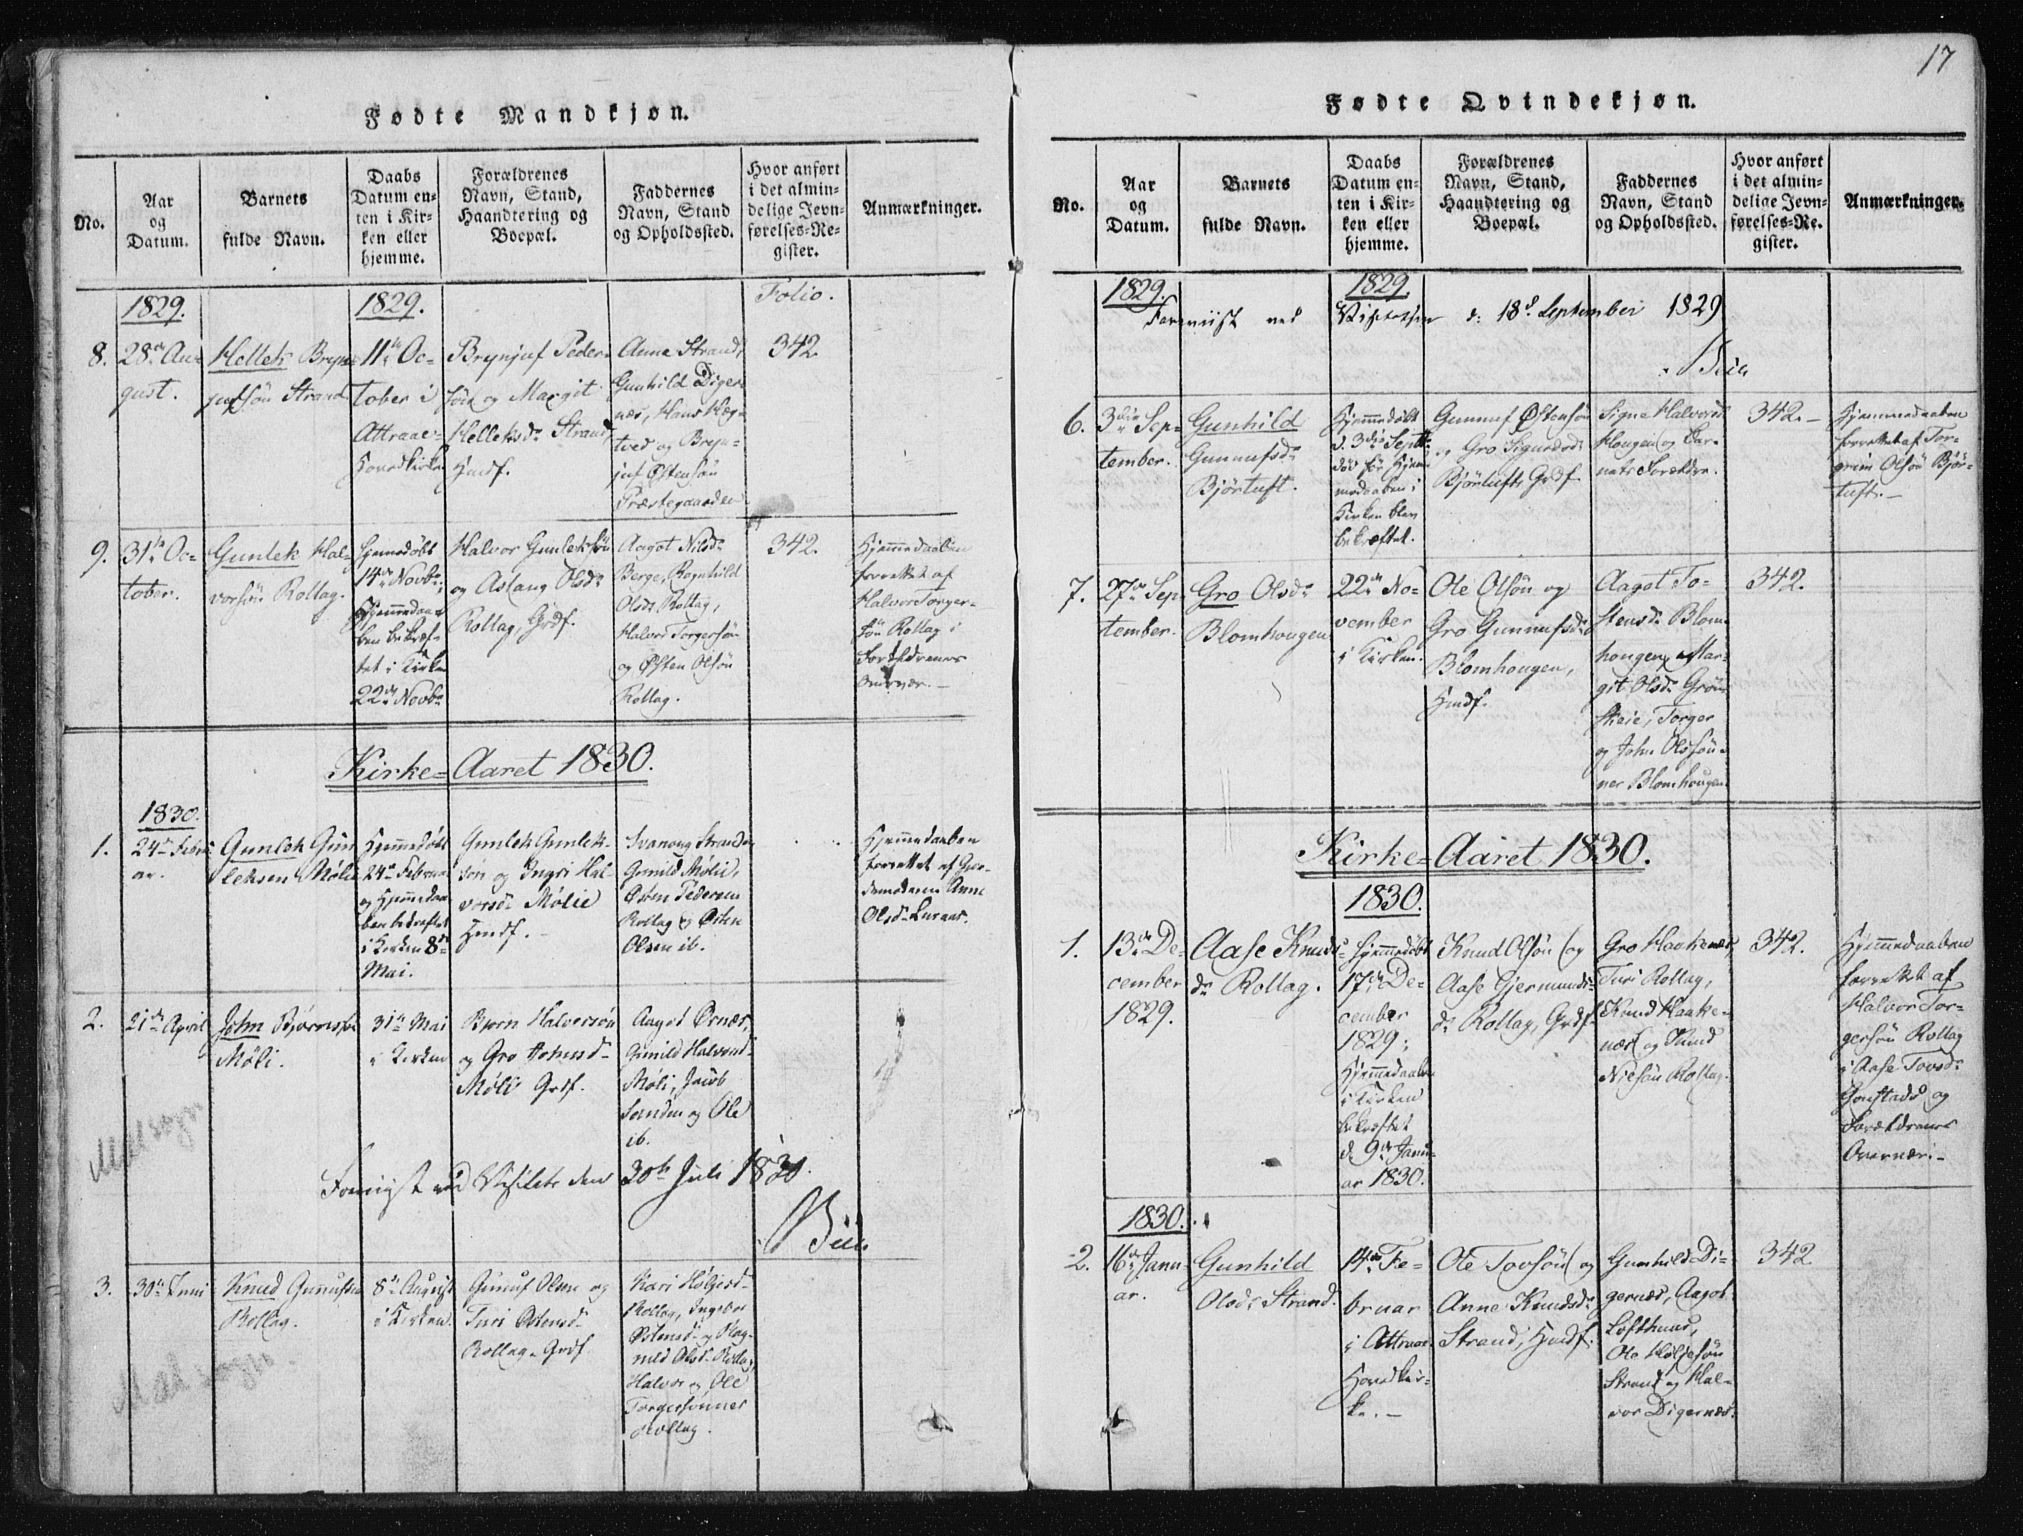 17
Fødte Mandkjøn.
No.
Aar
og
Datum.
Barnets
fulde Navn.
Daabs
Datum en-
ten i Kir-
ken eller
hjemme.
Forældrenes
Navn, Stand,
Haandtering og
Boepæl.
Faddernes
Navn, Stand
og Opholdssted.
Hvor anført
i det almin-
delige Jevn-
førelses-Re-
gister.
Anmærkninger.
1829.
1829.
Folio.
8.
28de Au-
gust.
Hellek Bryn-
julfsön Strand
11te Oc-
tober i
Attraae-
Hovedkirke
Brynjuf Peder-
sön og Margit
Helleksdr Strand,
Hmdf.
Anne Strand,
Gunhild Diger-
næs, Hans Hæg-
tved og Bryn-
juf Østensön
Præstegaarden
342.
9.
31te Oc-
tober.
Gunlek Hal-
vorsön Rollag.
Hjemedöbt
14de Novbr,
Hjemmedaa-
ben bekræf-
tet i Kirken
22de Novbr
Halvor Gunleksön
og Aslaug Olsdr
Rollag, Grdf.
Aagot Nilsdr
Berge, Ragnhild
Olsdr Rollag,
Halvor Torgersön
og Østen Olsön
Rollag.
342.
Hjemmedaaben
forrettet af
Halvor Torger-
sön Rollag i
Forældrenes
Overvær.-
Kirke-Aaret 1830.
1830.
1.
24de Febru-
ar.
Gunlek Gun-
leksen Mølie
Hjemmedöbt
24de Februar
og Hjemmedaa-
ben bekræftet
i Kirken 8de
Mai.
Gunlek Gunlek-
sön og Ingri Hal-
vorsdr Mølie
Hmdf.-
Svanaug Strand,
Gunild Mølie,
Østen Pedersen
Rollag og Østen
Olsen ib.
Hjemmedaaben
forrettet af Gjor-
demoderen Anne
Olsdr Luraas.
2.
21de April
John Bjørnssön
Møli.
31te Mai
i Kirken
Bjørn Halvorsön
og Gro Johnsd-
Møli Grdf.
Aagot Ørnæs,
Gunild Halvorsd-
Møli, Jacob
Sanden og Ole
ib.
Foreviist ved Visitats den 30te Juli 1830.
3.
30te Juni
Knud Gunufsen
Rollag.
8de August
i Kirken.
Gunuf Olsen og
Turi Østensd-
Rollag- Grdf.
Kari Holjesd-
Rollag, Ingebor
Østensd- og Rag-
nild Olsd- Rollag,
Halvor og Ole
Torgersønner
Rollag.
Fødte Qvindekjøn.
No.
Aar
og
Datum.
Barnets
fulde Navn.
Daabs
Datum en-
ten i Kir-
ken eller
hjemme.
Forældrenes
Navn, Stand,
Haandtering og
Boepæl.
Faddernes
Navn, Stand
og Opholdssted.
Hvor anført
i det almin-
delige Jevn-
førelses-Re-
gister.
Anmærkninger.
1829.
1829.
Foreviist ved Visitatsen d: 18de September 1829
6.
3die Sep-
tember.
Gunhild
Gunnufsdr
Bjørtuft.
Hjemmedöbt
d. 3die Septbr.
död för Hjem-
medaaben i
Kirken blev
bekræftet.
Gunnuf Østensön
og Gro Sigurdsdr
Bjørtuft, Grdf.
Signe Halvorsdr
Hougen og Bar-
nets Forældre.
342.-
Hjemmedaaben
forrettet af Tor-
grim Olsön Bjør-
tuft.-
7.
27de Sep-
tember.
Gro Olsdr
Blomhougen
22de No-
vember
i Kirken.
Ole Olsön og
Gro Gunnufsdr
Blomhougen,
Hmdf.
Aagot To-
stensdr Blom-
hougen, Mar-
git Olsdr Grön-
skeie, Torger
og John Olssön-
ner Blomhougen
342.
Kirke-Aaret 1830.
1830.
1.
13de De-
cember
1829.
Aase Knuds-
dr Rollag.
Hjemmedöbt
17de De-
cember
1829;
Hjemmedaaben
i Kirken
bekræftet
d. 9de Janu-
ar 1830.
Knud Olsön og
Aase Gjermunds-
dr Rollag, Grdf.
Gro Haakenæs,
Turi Rollag,
Knud Haake-
næs og Knud
Nielsön Rollag.
342.
Hjemmedaaben
forrettet af
Halvor Tor-
gersön Rollag
i Aase Tovsdr
Gonstads og
Forældrenes
Overvær.-
1830.
2.
16de Janu-
ar.
Gunhild
Olsdr Strand.
14de Fe-
bruar
i Attraae
Hovedkir-
ke.-
Ole Tovsön og
Anne Knudsdr
Strand, Hmdf.
Gunhild Di-
gernæs, Aagot
Lofthuus,
Ole Holjesön
Strand og Hal-
vor Digernæs.
342